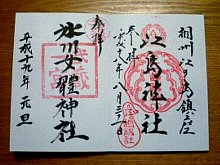 相州江乃島鎮座
江島神社
奉拝
平成十八年八月
奉拝
氷川女體神社
平成十九年元旦